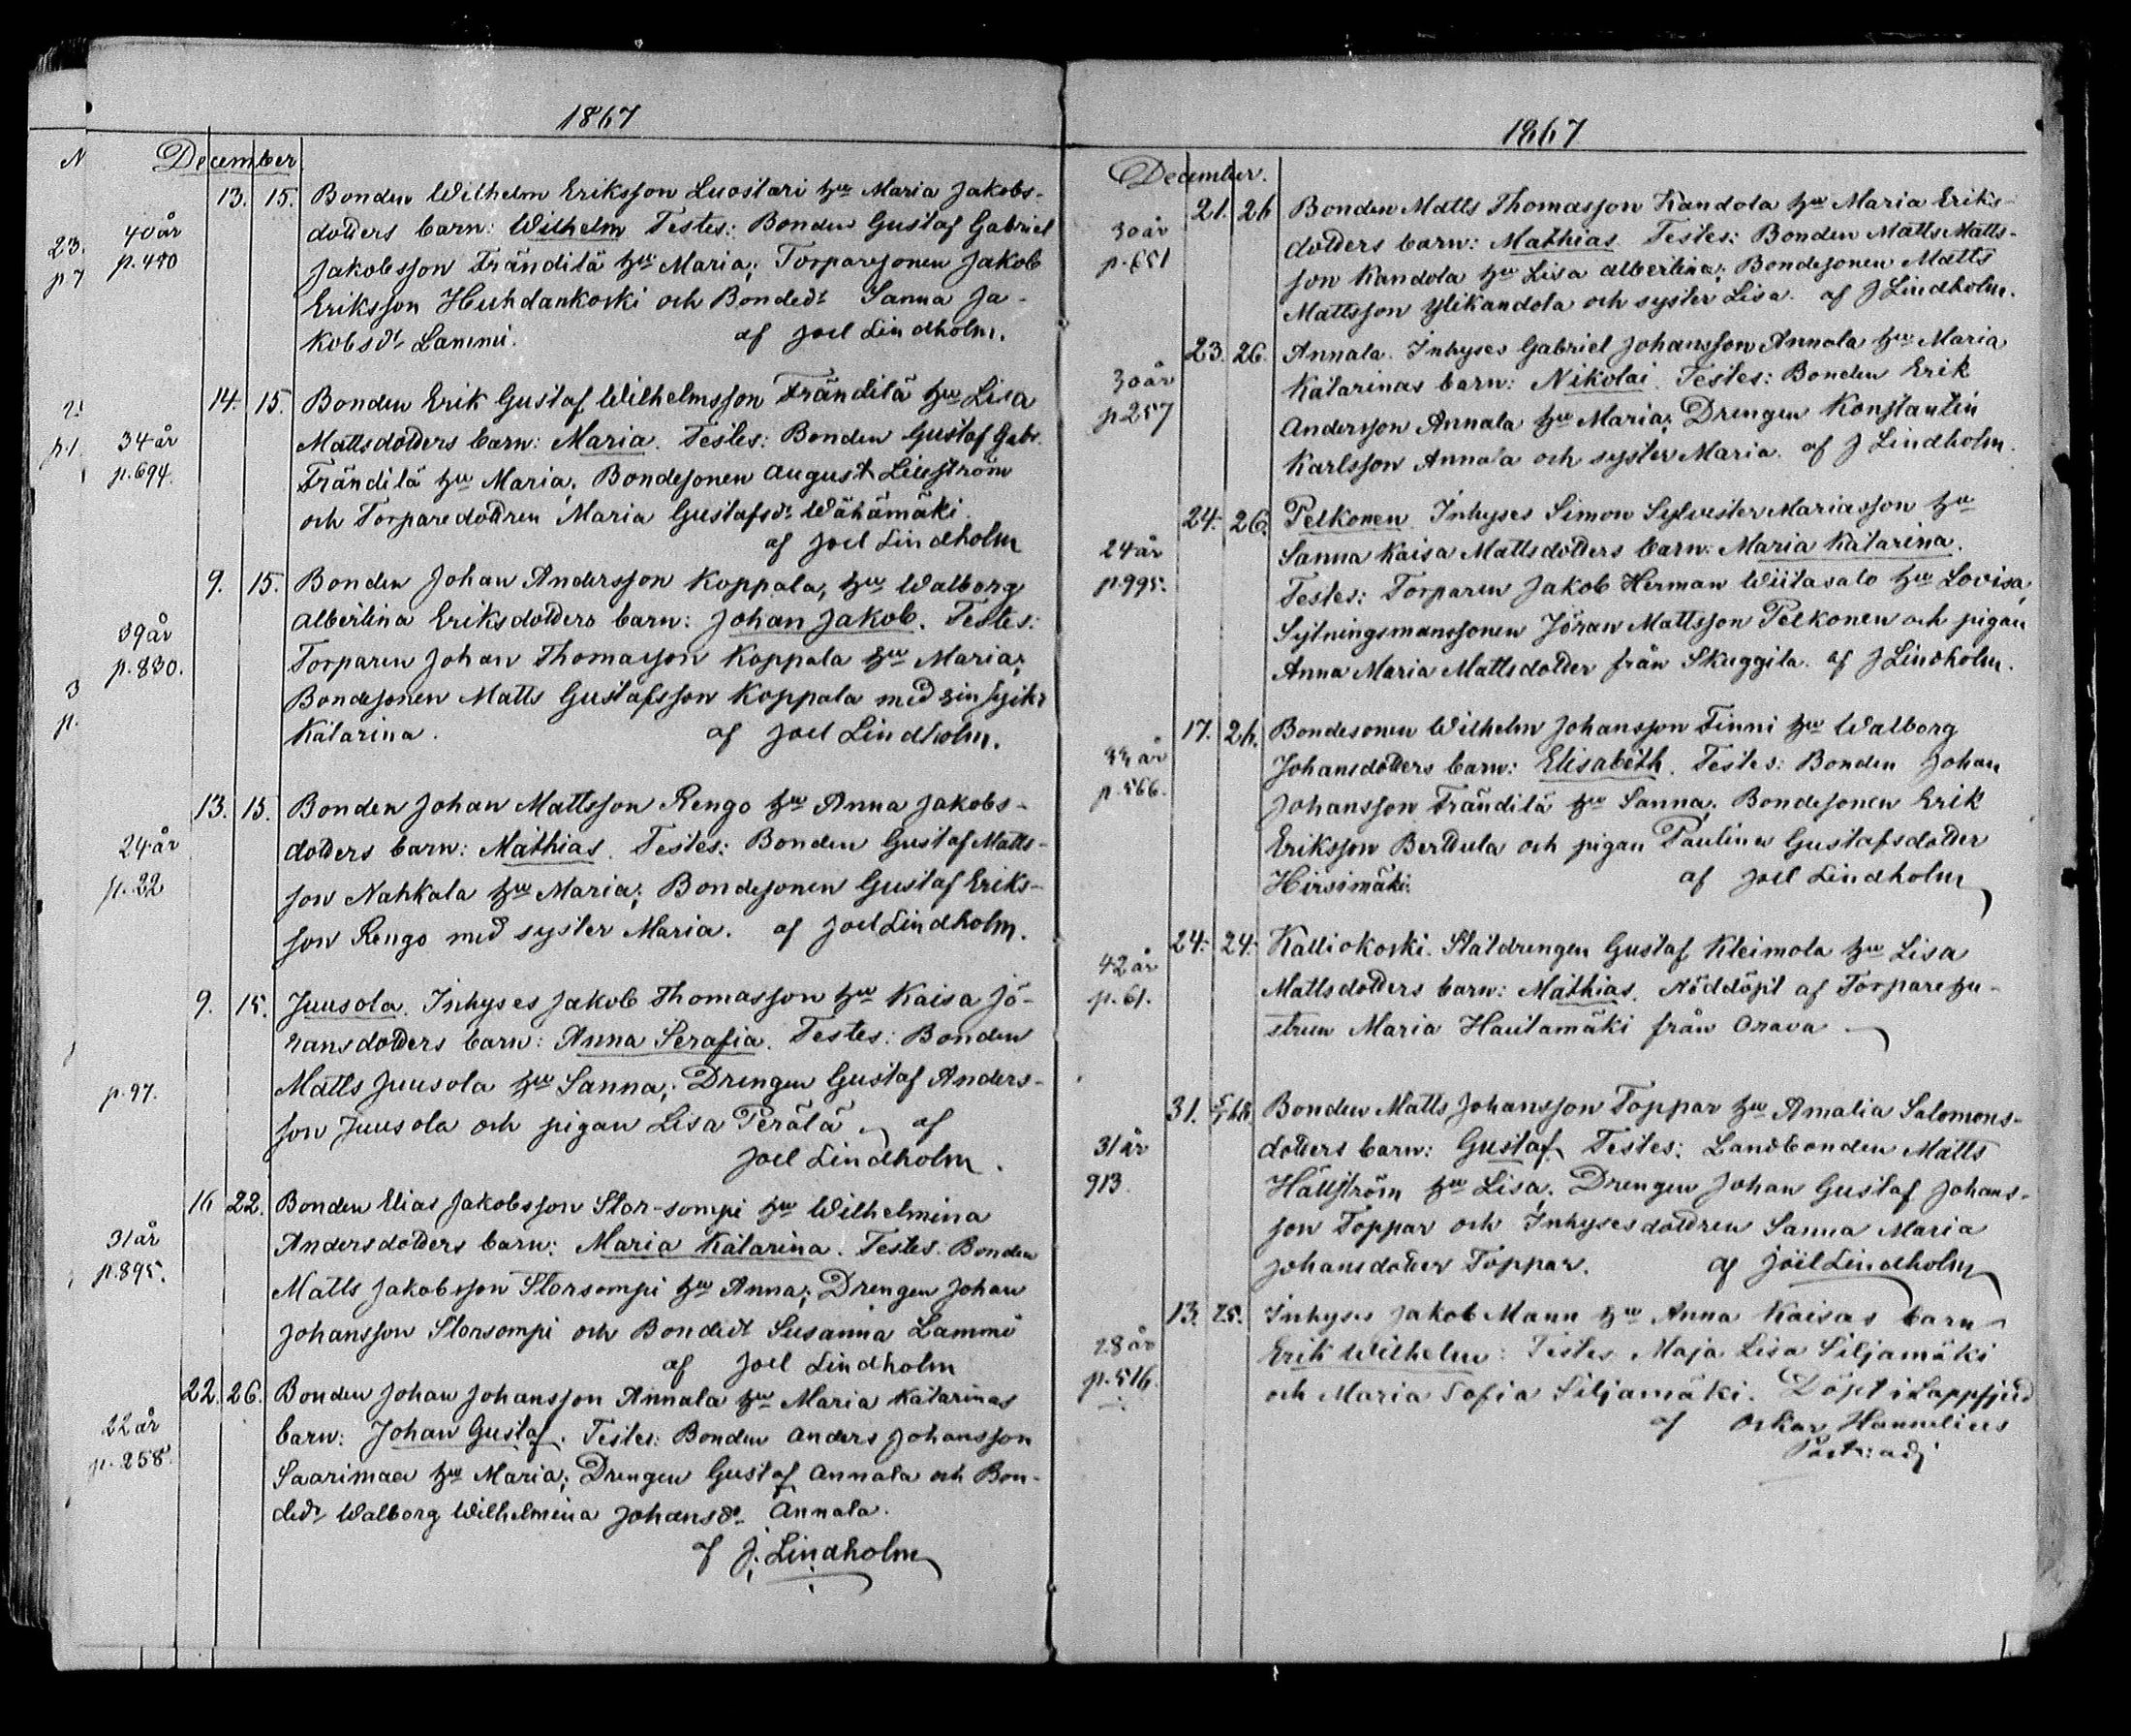 1867
December
13. 15. Bonden Wilhelm Eriksson Luostari hu Maria Jakobs-
40 år dotters barn: Wilhelm Testes: Bonden Gustaf Gabriel
p. 480 Jakobsson Frändilä hu Maria; Torparesonen Jakob
Eriksson Huhdankoski och Bondedr Sanna Ja-
kobsdr Lammi. af Joel Lindholm.
14. 15. Bonden Erik Gustaf Wilhelmsson Frändilä hu Lisa
34 år Mattsdotters barn: Maria. Testes: Bonden Gustaf Gabr.
p. 694. Frändilä hu Maria; Bondesonen August Liuström
och Torparedottren Maria Gustafsdr Wähämäki.
af Joel Lindholm
9. 15. Bonden Johan Andersson Koppala, hu Walborg
Albertina Eriksdotters barn: Johan Jakob. Testes:
39 år Torparen Johan Thomasson Koppala hu Maria;
p. 830. Bondesonen Matts Gustafsson Koppala med sin
Katarina. af Joel Lindholm.
13. 15. Bonden Johan Mattsson Rengo hu Anna Jakobs-
24 år dotters barn: Mathias. Testes: Bonden Gustaf Matts-
p. 22 son Nahkala hu Maria; Bondesonen Gustaf Eriks-
son Rengo med syster Maria. af Joel Lindholm.
9. 15. Juusola. Inhyses Jakob Thomasson hu Kaisa Jö-
ransdotters barn: Anna Serafia. Testes: Bonden
p. 97. Matts Juusola hu Sanna; Drengen Gustaf Anders-
son Juusola och pigan Lisa Perälä af
Joel Lindholm.
16 22. Bonden Elias Jakobsson Stor-sompi hu Wilhelmina
31 år Andersdotters barn: Maria Katarina. Testes: Bonden
p. 895. Matts Jakobsson Storsompi hu Anna; Drengen Johan
Johansson Storsompi och Bondedt Susanna Lammi
af Joel Lindholm
22. 26. Bonden Johan Johansson Annala hu Maria Katarinas
22 år barn: Johan Gustaf. Testes: Bonden Anders Johansson
p. 258. Saarimaa hu Maria; Drengen Gustaf Annala och Bon-
dedr Walborg Wilhelmina Johansdr Annala.
af J. Lindholm
1867
December.
21. 26 Bonden Matts Thomasson Kandola hu Maria Eriks-
30 år dotters barn: Mathias Testes: Bonden Matts Matts-
p. 651 son Kandola hu Lisa Albertina; Bondesonen Matts
Mattsson Ylikandola och syster Lisa. af J Lindholm.
23. 26. Annala. Inhyses Gabriel Johansson Annala hu Maria
30 år Katarinas barn: Nikolai. Testes: Bonden Erik
p 257 Andersson Annala hu Maria; Drengen Konstantin
Karlsson Annala och syster Maria. af J Lindholm.
24. 26. Pelkonen Inhyses Simon Sylvester Mariasson hu
24 år Sanna Kaisa Mattsdotters barn: Maria Katarina.
p. 995. Testes: Torparen Jakob Herman Wiitasalo hu Lovisa;
Sytningsmanssonen Jöran Mattsson Pelkonen och pigan
Anna Maria Mattsdotter från Skuggila. af J Lindholm.
17. 26. Bondesonen Wilhelm Johansson Finni hu Walborg
33 år Johansdotters barn: Elisabeth. Testes: Bonden Johan
p. 566. Johansson Frändilä hu Sanna; Bondesonen Erik
Eriksson Berttula och pigan Paulina Gustafsdotter
Hirsimäki. af Joel Lindholm
24. 24. Kalliokoski. Statdrengen Gustaf Kleimola hu Lisa
42 år Mattsdotters barn: Mathias. Nöddöpt af Torparehu-
p. 61. strun Maria Hautamäki från Orava
31. 5/1 68. Bonden Matts Johansson Toppar hu Amalia Salomons-
31 år dotters barn: Gustaf. Testes: Landbonden Matts
913. Hällström hu Lisa; Drengen Johan Gustaf Johans-
son Toppar och Inhysesdottren Sanna Maria
Johansdotter Toppar. af Joël Lindholm
13. 25. Inhyses Jakob Mann hu Anna Kaisas barn
28 år Erik Wilhelm: Testes Maja Lisa Siljamäki
p. 516. och Maria Sofia Siljamäki. Döpt i Lappfjerd
af Oskar Hannelius
Past: adj